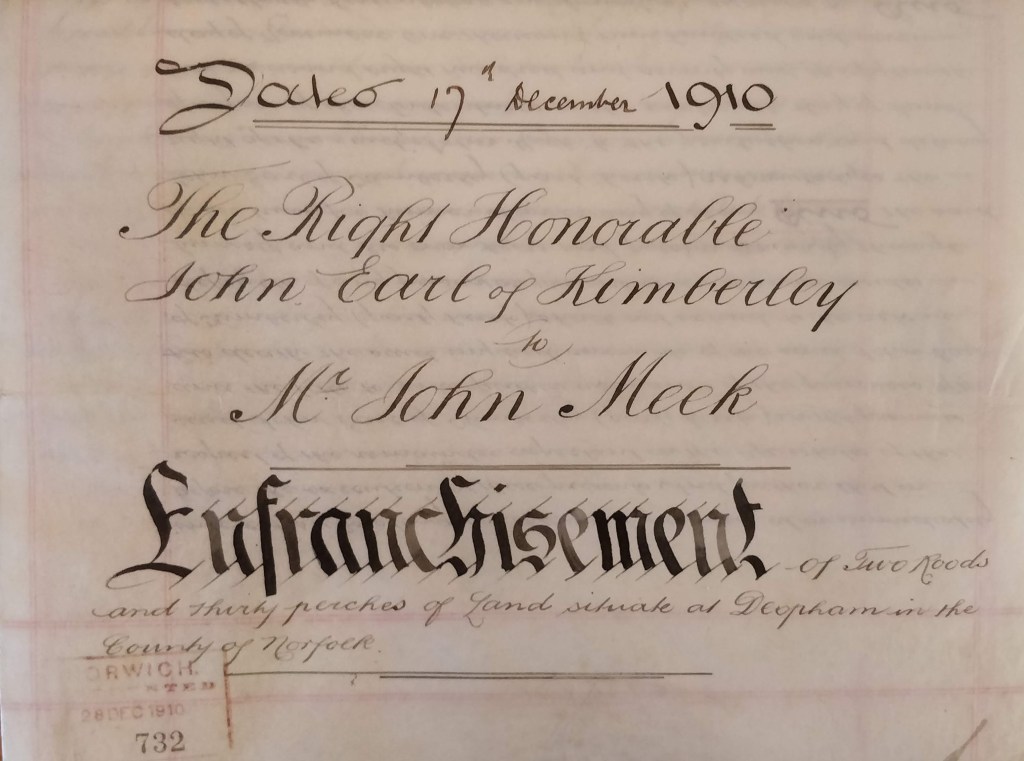 Dated 17th December 1910
The Right Honorable
John Earl of Kimberley
to
Mr. John Meek
Enfranchisement of Two Roods
and thirty perches of Land situate at Deopham in the
County of Norfolk.
ORWICH.
28 DEC 1910
732